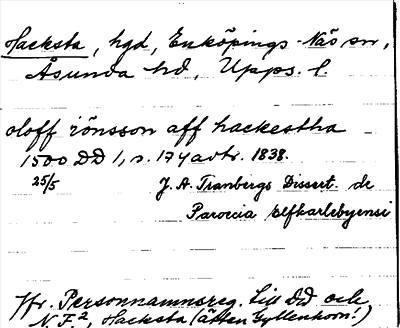 Hacksta, hgd, Enköpings-Näs sn,
Åsunda hd, Upps. l.
oloff iönsson aff hackestha
1500 DD 1, s. 174 avtr. 1838.
25/5 J. A. Tranbergs Dissert. de
Paroecia Elfkarlebyensi
Jfr. Personnamnsreg. till DD och
N.F.², Hacksta (ätten Gyllenhorn!)